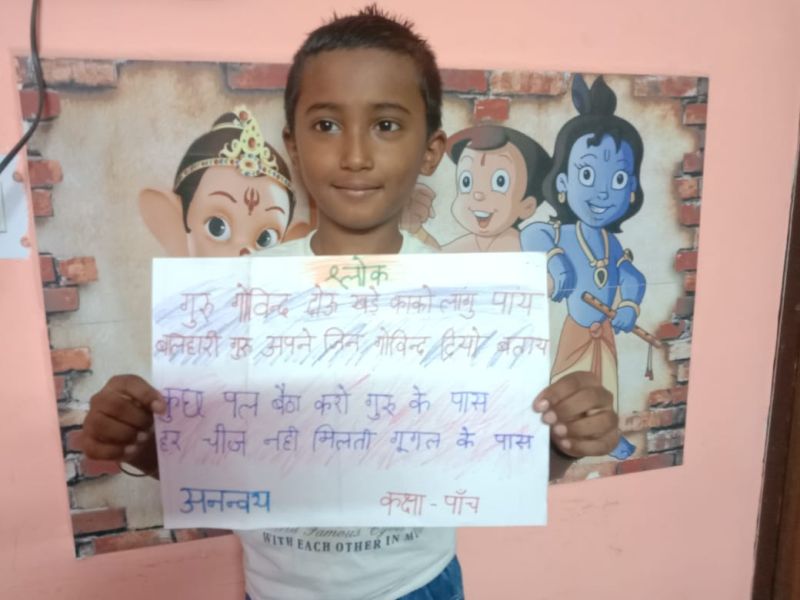 श्लोक
गुरु गोविन्द दोऊ खड़े काको लागु पाय
बलिहारी गुरु अपने जिन गोविन्द दियो बताय
कुछ पल बैठा करो गुरु के पास
हर चीज नही मिलती गूगल के पास
अनन्वय कक्षा - पाँच
WITH EACH OTHER IN